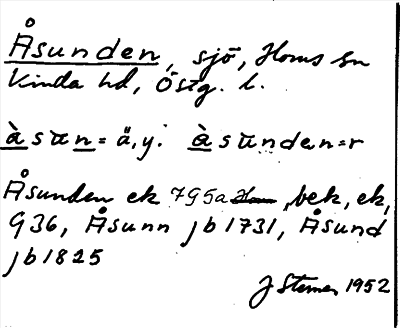 Åsunden, sjö, Horns sn
Kinda hd, Östg. l.
àsūn = ä.y. àsūnden=r
Åsunden ek 7G5a, bek, ek,
G36, Åsunn jb 1731, Åsund
jb 1825
J Sterner 1952